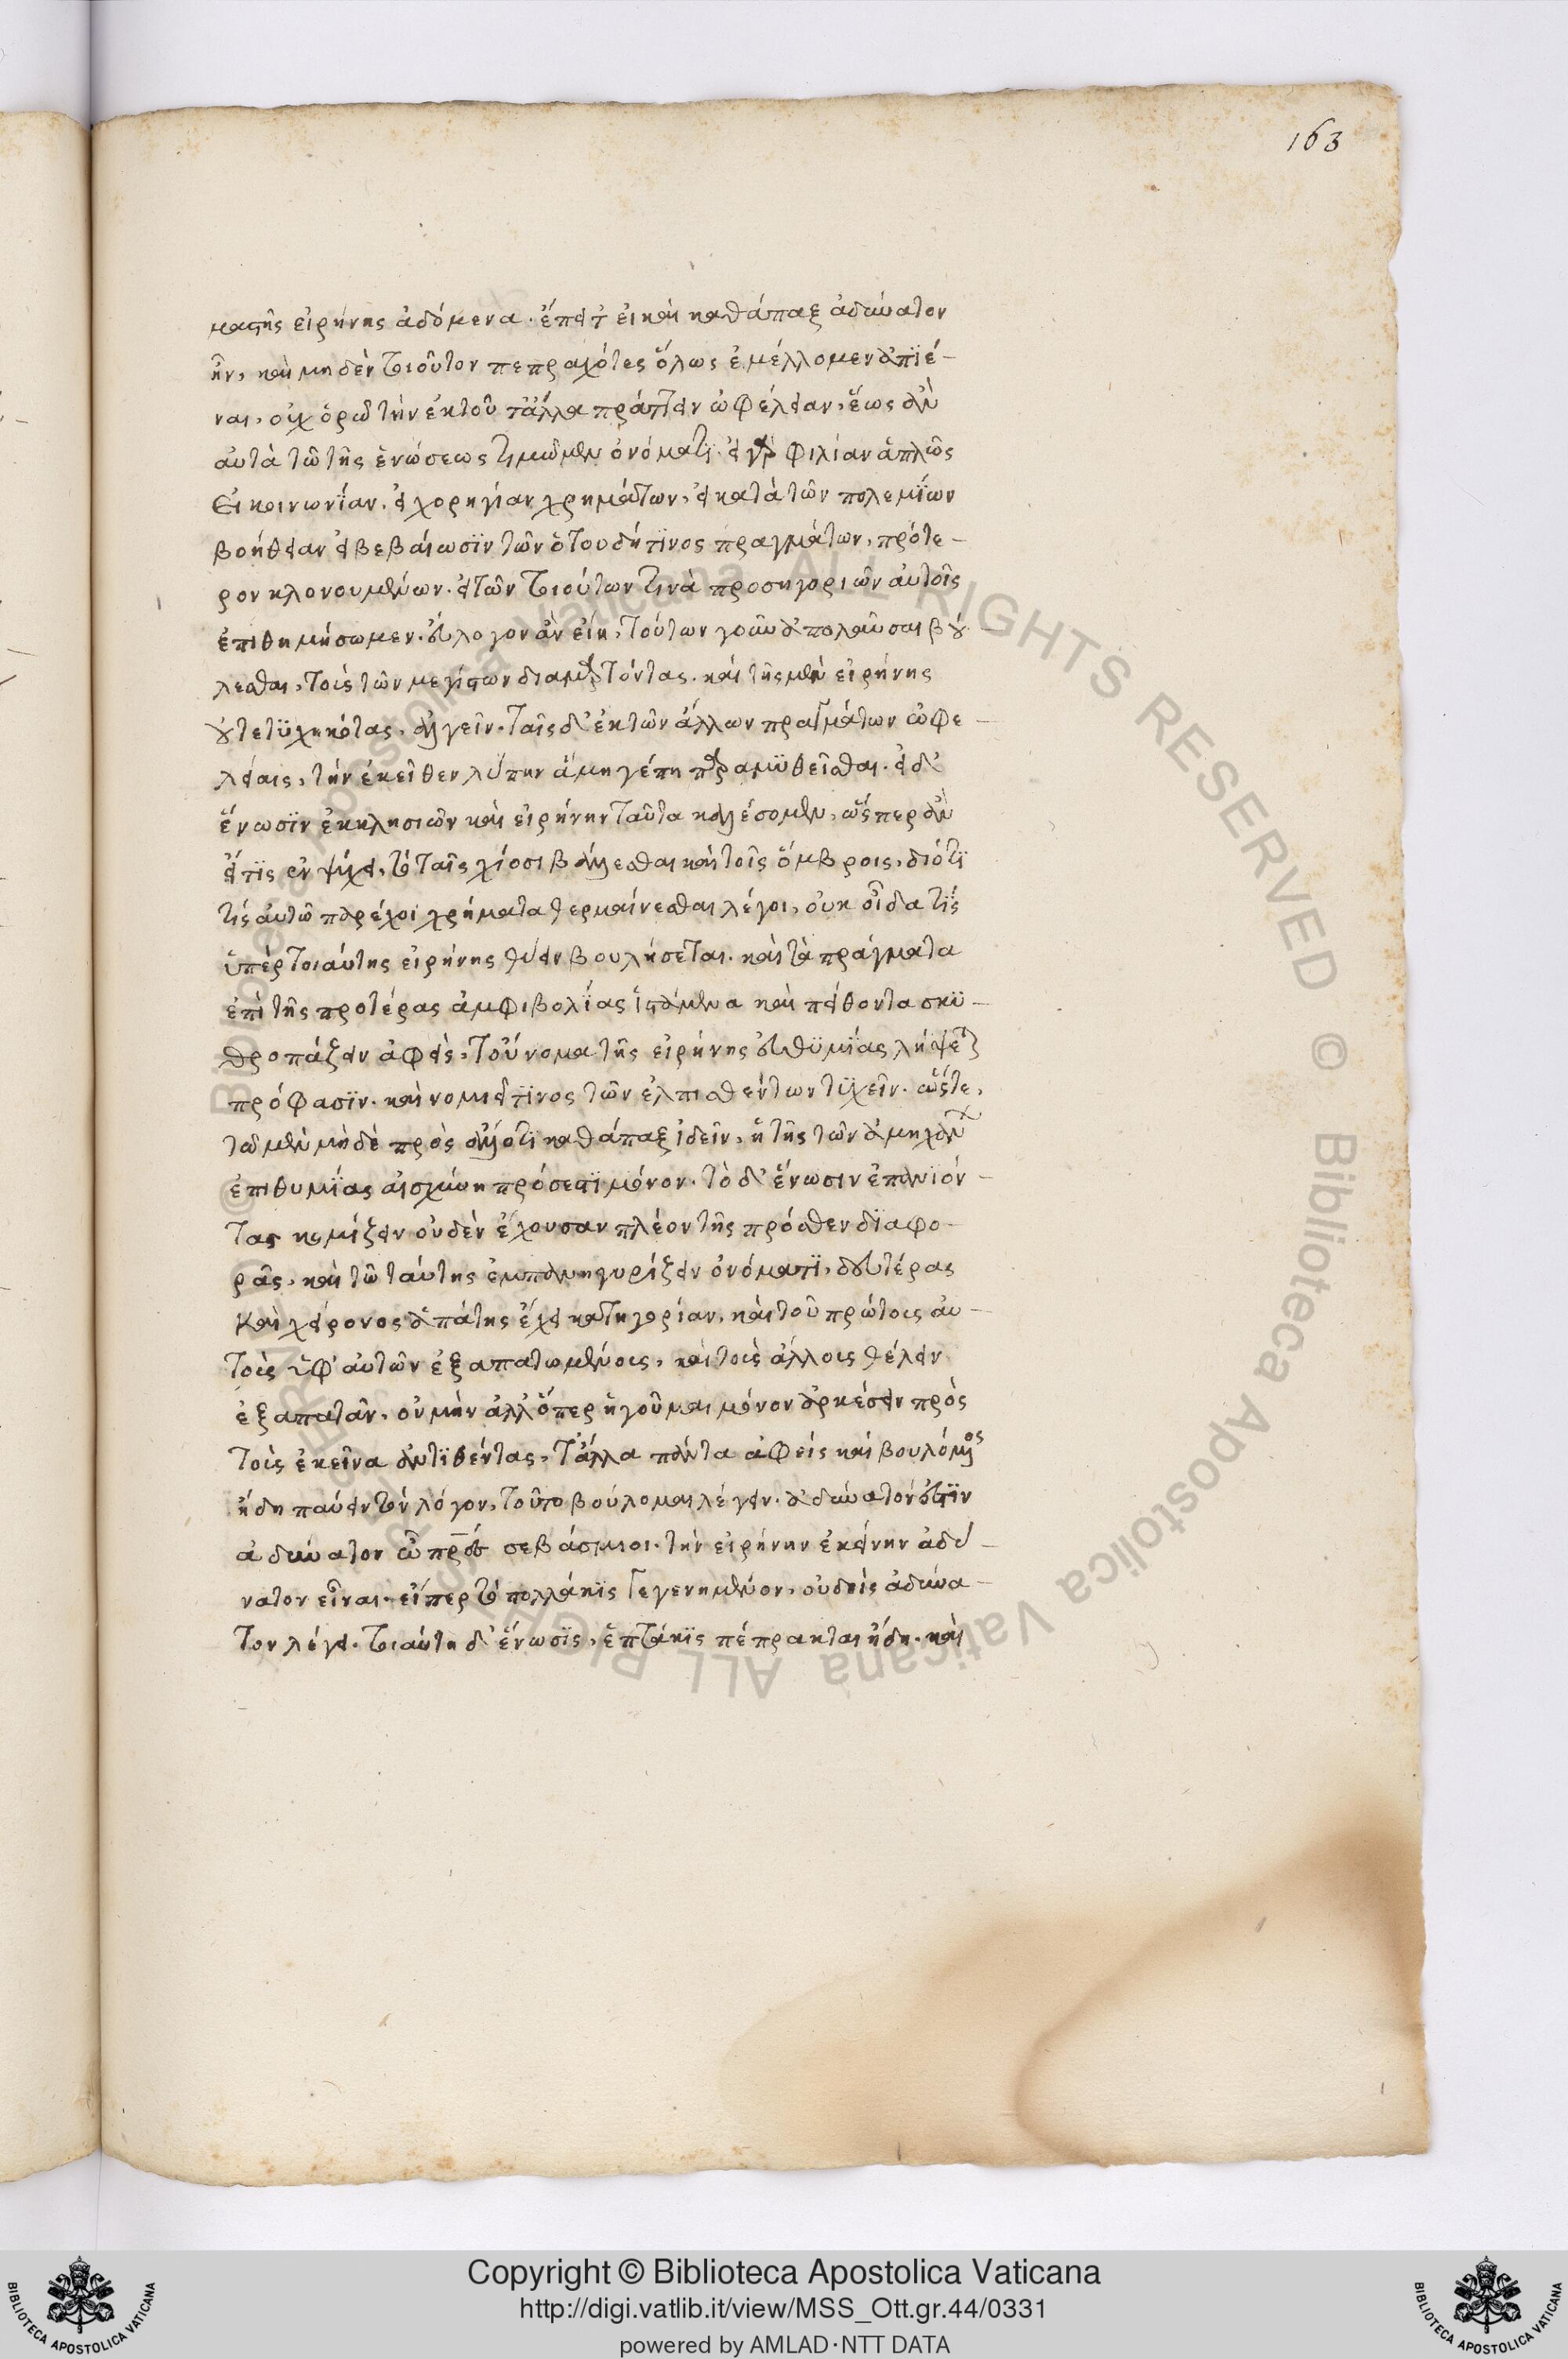 163
ματῆς εἰρήνης ἀδόμενα. ἔπειτ εἰ καὶ καθάπαξ ἀδύνατον
ἦν, καὶ μηδὲν τοιοῦτον πεπραχότες ὅλως ἐμέλλομεν ἀπϊέ-
ναι, οὐχ ὁρῶ τὴν ἐκτοῦ τἄλλα πράττειν ὠφέλειαν, ἕως ἂν
αὐτὰ τῶ τῆς ἑνώσεως τιμῶμεν ὀνόματϊ. εἰ γὰρ φιλίαν ἁπλῶς
εἰ κοινωνΐαν. εἰ χορηγίαν χρημάτων, εἰ κατὰ τῶν πολεμΐων
βοήθειαν εἰ βεβαίωσϊν τῶν ὁτουδήτϊνος πραγμάτων, πρότε-
ρον κλονουμένων. εἰ τῶν τοιούτων τινὰ προσηγοριῶν αὐτοῖς
ἐπιθημήσωμεν. εὔλογον ἂν εἴη, τούτων γοῦν ἀπολαῦσαι βού
λεσθαι, τοὺς τῶν μεγίστων διαμαρτόντας. καὶ τῆς μὲν εἰρήνης
οὐ τετϋχηκότας, ἀλγεῖν. ταῖς δ' ἐκ τῶν ἄλλων πραγμάτων ὠφε-
λείαις, τὴν ἐκεῖθεν λύπην ἄμηγέπη παραμϋθεῖσθαι. εἰ δ'
ἕνωσϊν ἐκκλησιῶν καὶ εἰρήνην ταῦτα καλέσομεν, ὥσπερ ἂν
εἴ τϊς ἐν ψύχει, τὸ ταῖς χίοσι βάλλεσθαι καὶ τοῖς ὄμβροις, διότϊ
τίς αὐτῶ παρέχοι χρήματα θερμαίνεσθαι λέγοι, οὐκ οἶδα τΐς
ὑπὲρ τοιαύτης εἰρήνης θύειν βουλήσεται. καὶ τὰ πράγματα
ἐπὶ τῆς προτέρας ἀμφιβολίας ἱστάμενα καὶ πείθοντα σκϋ-
θροπάζειν ἀφεὶς, τοὔνομα τῆς εἰρήνης εὐθϋμΐας λήψεται
πρόφασϊν. καὶ νομιεῖ τϊνος τῶν ἐλπισθέντων τϋχεῖν. ὥστε,
τῶ μὲν μηδὲ πρὸς ἀλλότϊ καθάπαξ ἰδεῖν, ἢ τῆς τῶν ἀμηχάνων
ἐπιθυμΐας αἰσχύνη πρόσεστϊ μόνον. τὸ δ' ἕνωσιν ἐπανιόν-
τας κομίζειν οὐδὲν ἔχουσαν πλέον τῆς πρόσθεν δϊαφο-
ρᾶς, καὶ τῶ ταύτης ἐμπανηγυρίζειν ὀνόματϊ, δευτέρας
καὶ χείρονος ἀπάτης ἔχει κατηγορίαν, καὶ τοῦ πρώτοις αὐ-
τοῖς ὑφ' αὑτῶν ἐξαπατωμένοις, καὶ τοὺς ἄλλοις θέλειν
ἐξαπατᾶν. οὐ μὴν ἀλλ' ὅπερ ἡγοῦμαι μόνον ἀρκέσειν πρὸς
τοὺς ἐκεῖνα ἀντϊθέντας, τἄλλα πάντα ἀφεὶς καὶ βουλόμενος
ἤδη παύειν τὸν λόγον, τοῦτο βούλομαι λέγειν. ἀδύνατόν ἐστϊν
ἀδύνατον ὦ πρες σεβάσμιοι. τὴν εἰρήνην ἐκείνην ἀδύ-
νατον εἶναι. εἴπερ τὸ πολλάκϊς γεγενημένον, οὐδεὶς ἀδύνα-
τον λέγει. τοιαύτη δ' ἕνωσϊς, ἑπτάκϊς πέπρακται ἤδη. καὶ
© Biblioteca Apostolica Vaticana ALL RIGHTS RESERVED © Biblioteca Apostolica Vaticana ALL RIGHTS RESERVED
BIBLIOTECA APOSTOLICA VATICANA
Copyright © Biblioteca Apostolica Vaticana
http://digi.vatlib.it/view/MSS_Ott.gr.44/0331
powered by AMLAD·NTT DATA
BIBLIOTECA APOSTOLICA VATICANA